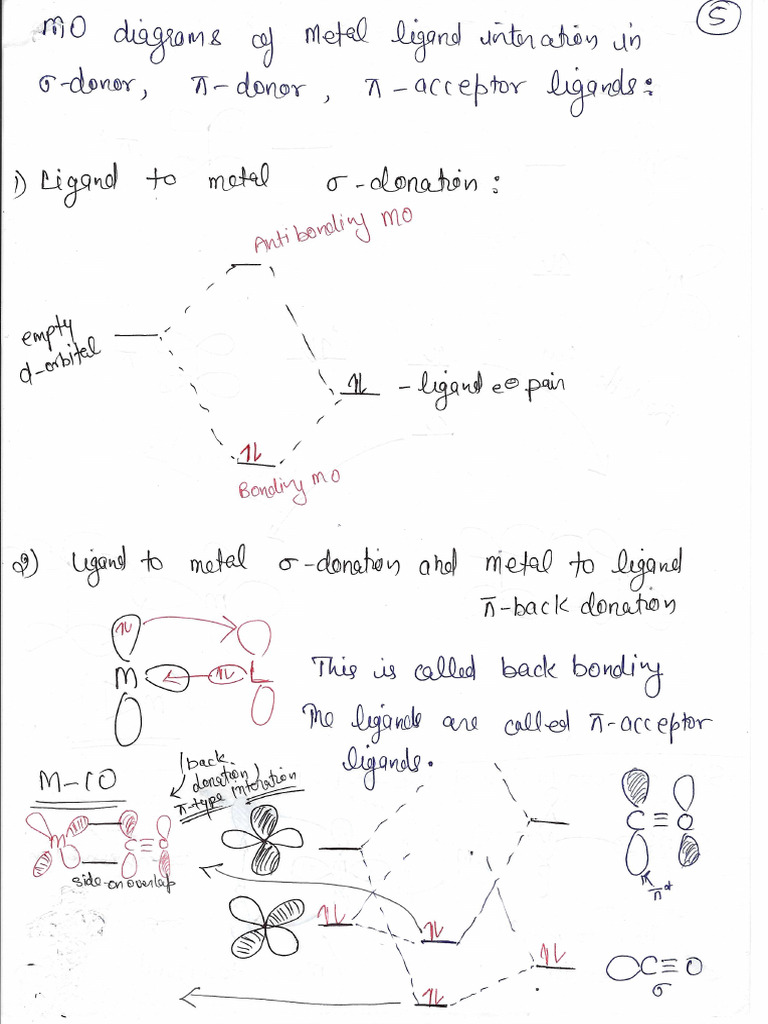 5
MO diagrams of Metal ligand interation in
σ-donor, π-donor, π-acceptor ligands:
1) Ligand to metal σ-donation:
Antibonding MO
empty
d-orbital
⥮ - ligand e⊖ pair
⥮
Bonding MO
2) Ligand to metal σ-donation and metal to ligand
π-back donation
⥮
M ⥮ L
This is called back bonding
The ligands are called π-acceptor
ligands.
M-CO
(back
donation)
π-type interation
M C=O
side-on overlap
C≡O
π*
⥮
⥮
⥮
⥮
C≡O
σ